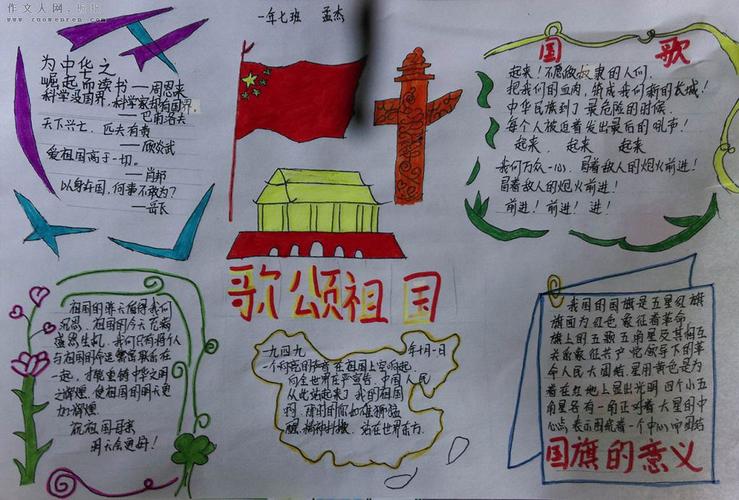 作文人网
www.zuowenren.com
一年七班 孟杰
为中华之
崛起而读书——周恩来
科学没国界,科学家却有国界。
——巴甫洛夫
天下兴亡,匹夫有责
爱祖国高于一切。
——肖邦
以身许国,何事不敢为?
——岳飞
国歌
起来!不愿做奴隶的人们,
把我们的血肉,筑成我们新的长城!
中华民族到了最危险的时候,
每个人被迫着发出最后的吼声!
起来 起来 起来
我们万众一心,冒着敌人的炮火前进!
冒着敌人的炮火前进!
前进!前进!进!
歌颂祖国
祖国的昨天值得我们
沉思,祖国的今天充满
蓬勃生机,我们只有将个人
与祖国的命运紧紧联系在
一起,才能重铸中华之明
之辉煌,使祖国的明天更
加辉煌。
祝祖国母亲
明天会更好!
一九四九 年十月一日
一个响亮的声音在祖国上空响起,
向全世界庄严宣告,中国人民
从此站起来了 我的祖国
精神抖擞,站在世界东方。
我国的国旗是五星红旗
旗面为红色象征着革命,
旗上的五颗五角星及其相互
关系象征共产党领导下的革
命人民大团结,星用黄色是为
着在红地上显出光明 四个小五
角星各有一角正对着大星的中
心点,表示围绕着一个中心而团结
国旗的意义